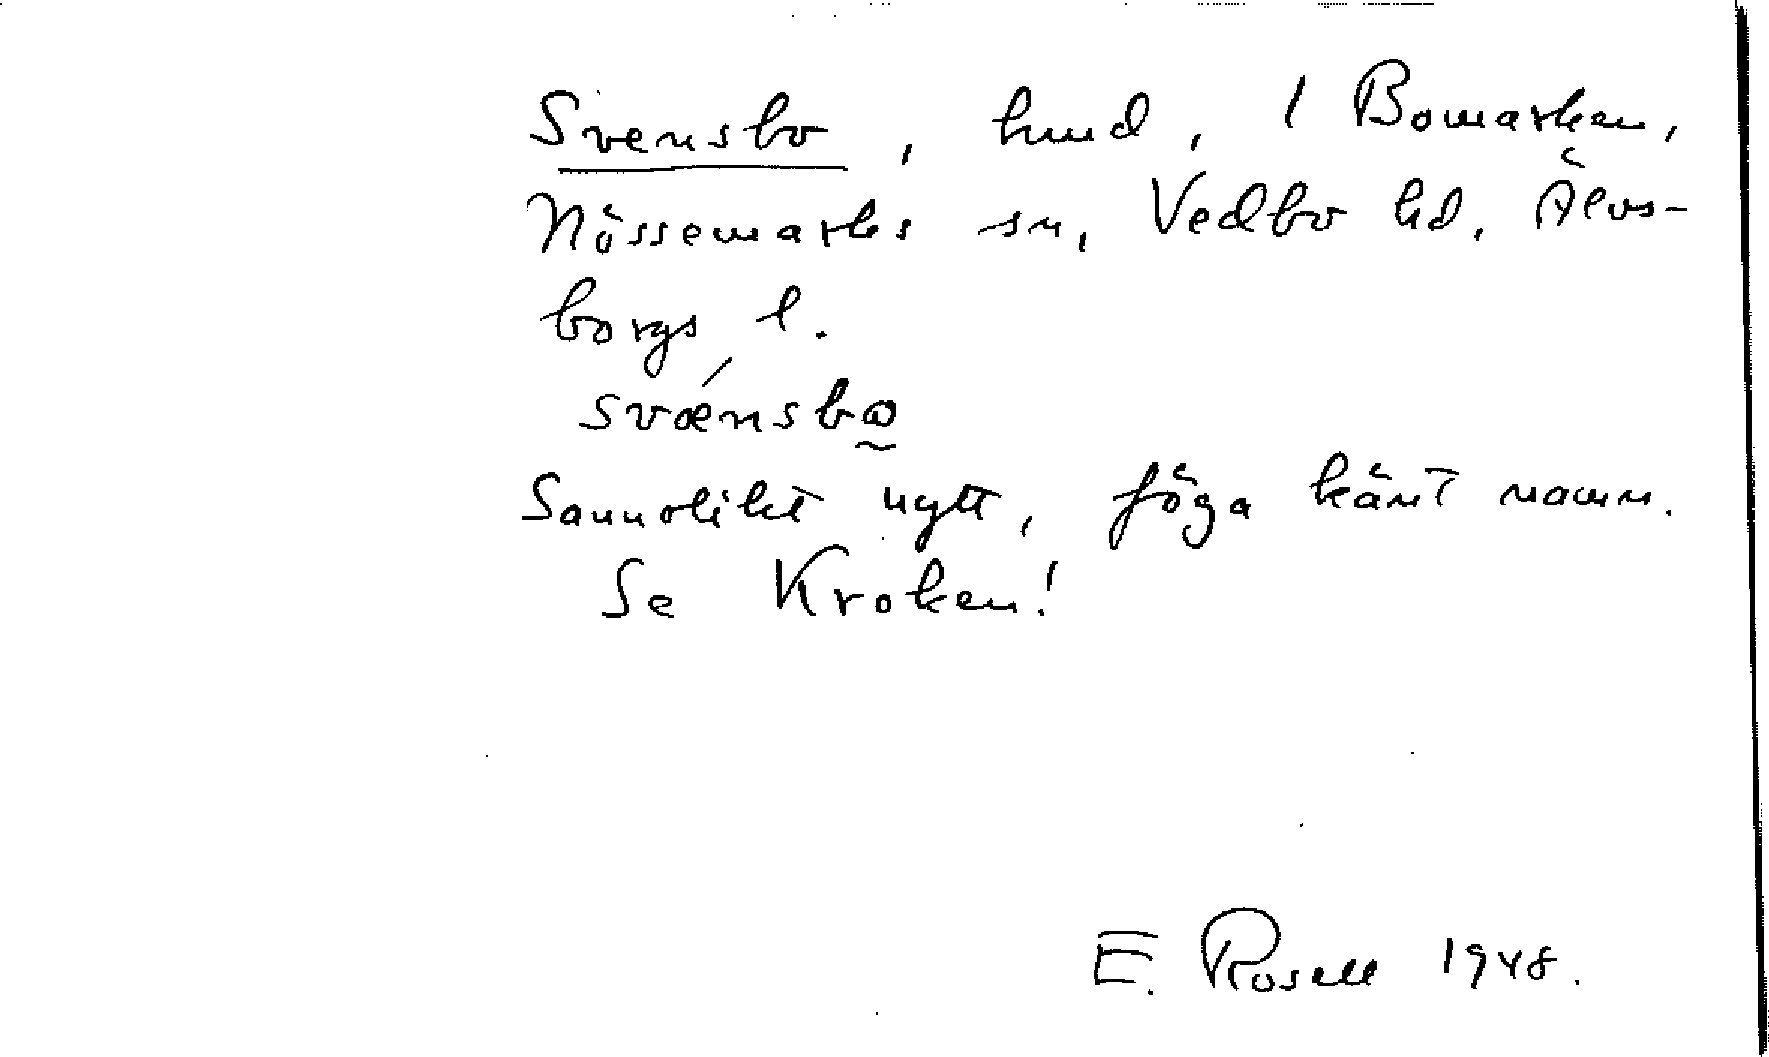 Svensbo, hmd, 1 Bomarken,
Nössemarks sn, Vedbo hd, Älvs-
borgs l.
svǽnsbω̰
Sannolikt nytt, föga känt namn.
Se Kroken!
E. Rosell 1948.